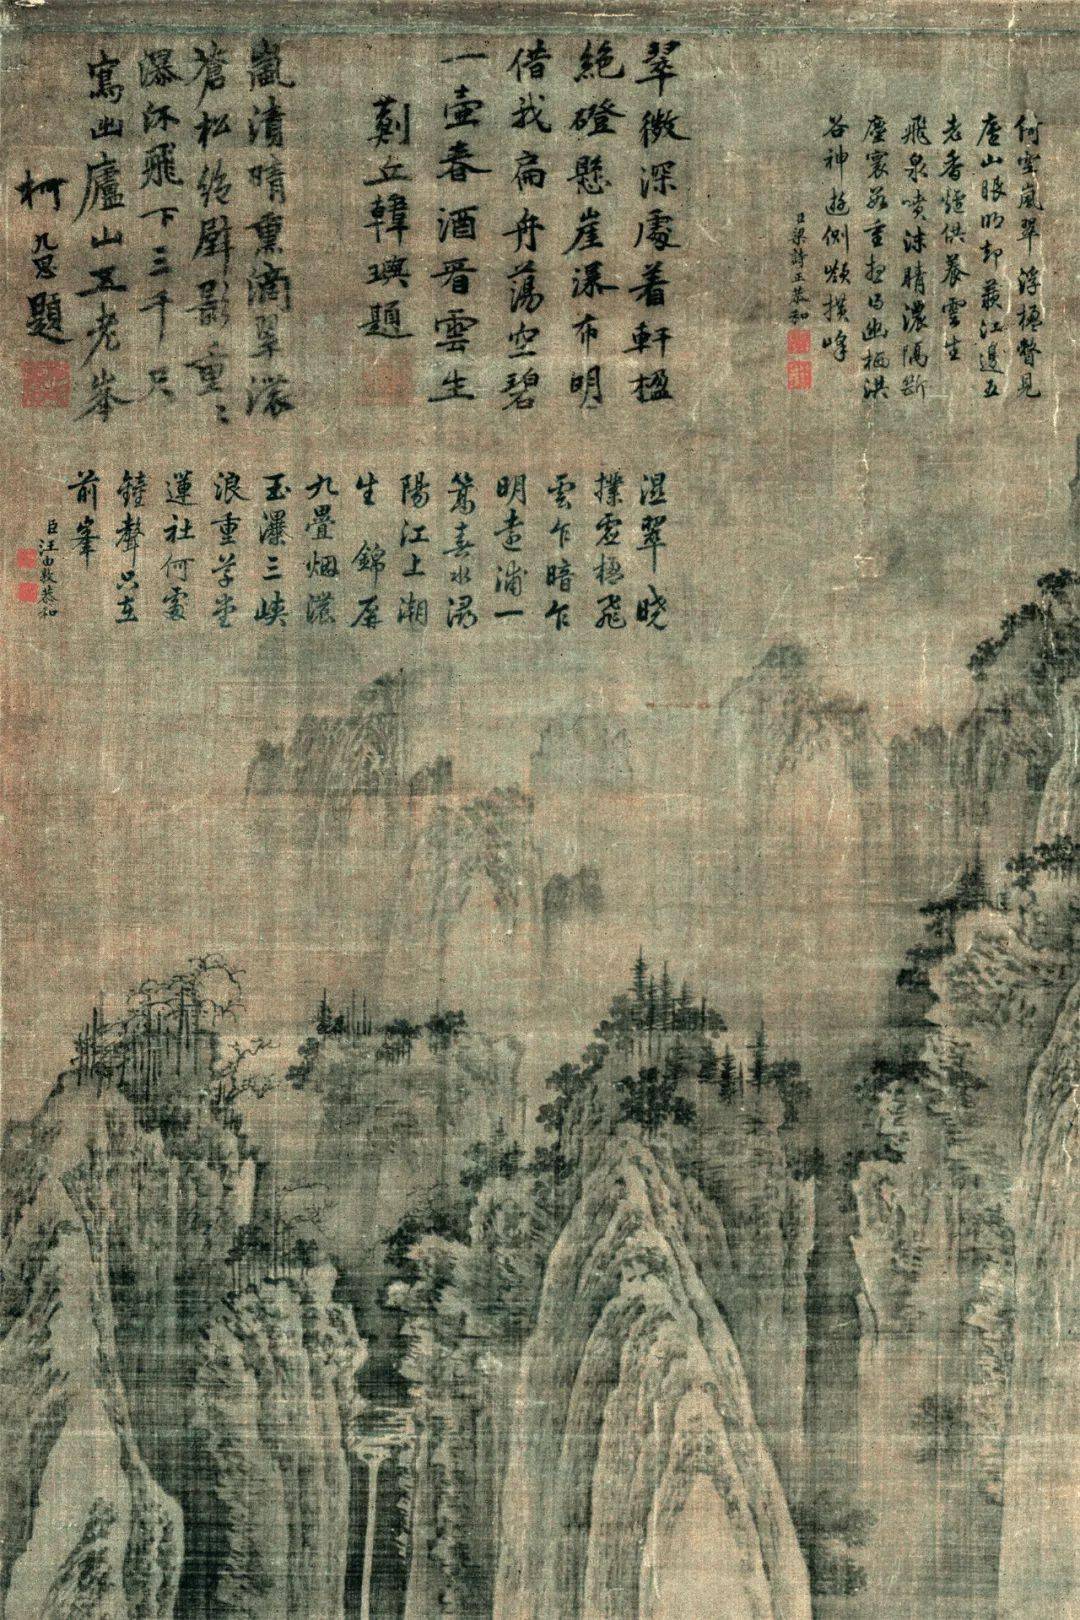 何處嵐翠浮楹瞥見
廬山眼明却羨江邊五
老香爐供養雲生
飛泉噴沫晴濃隔斷
塵寰萬重想幽栖洪
谷神遊側嶺橫峰
臣梁詩正恭和
翠微深處着軒楹
絶磴懸崖瀑布明
借我扁舟蕩空碧
一壺春酒看雲生
薊丘韓璵題
嵐漬晴熏滴翠濃
蒼松絶壁影重〻
瀑流飛下三千尺
寫出廬山五老峯
柯九思題
湿翠曉
撲虛楹飛
雲乍暗乍
明遠浦一
篙春水潯
陽江上潮
生 錦屏
九疊烟濃
玉瀑三峽
浪重草堂
蓮社何處
鐘聲只在
前峯
臣汪由敦恭和